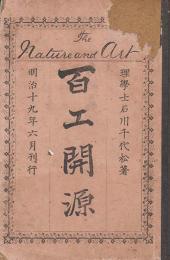 The
Nature and Art
理學士石川千代松著
百工開源
明治十九年六月刊行